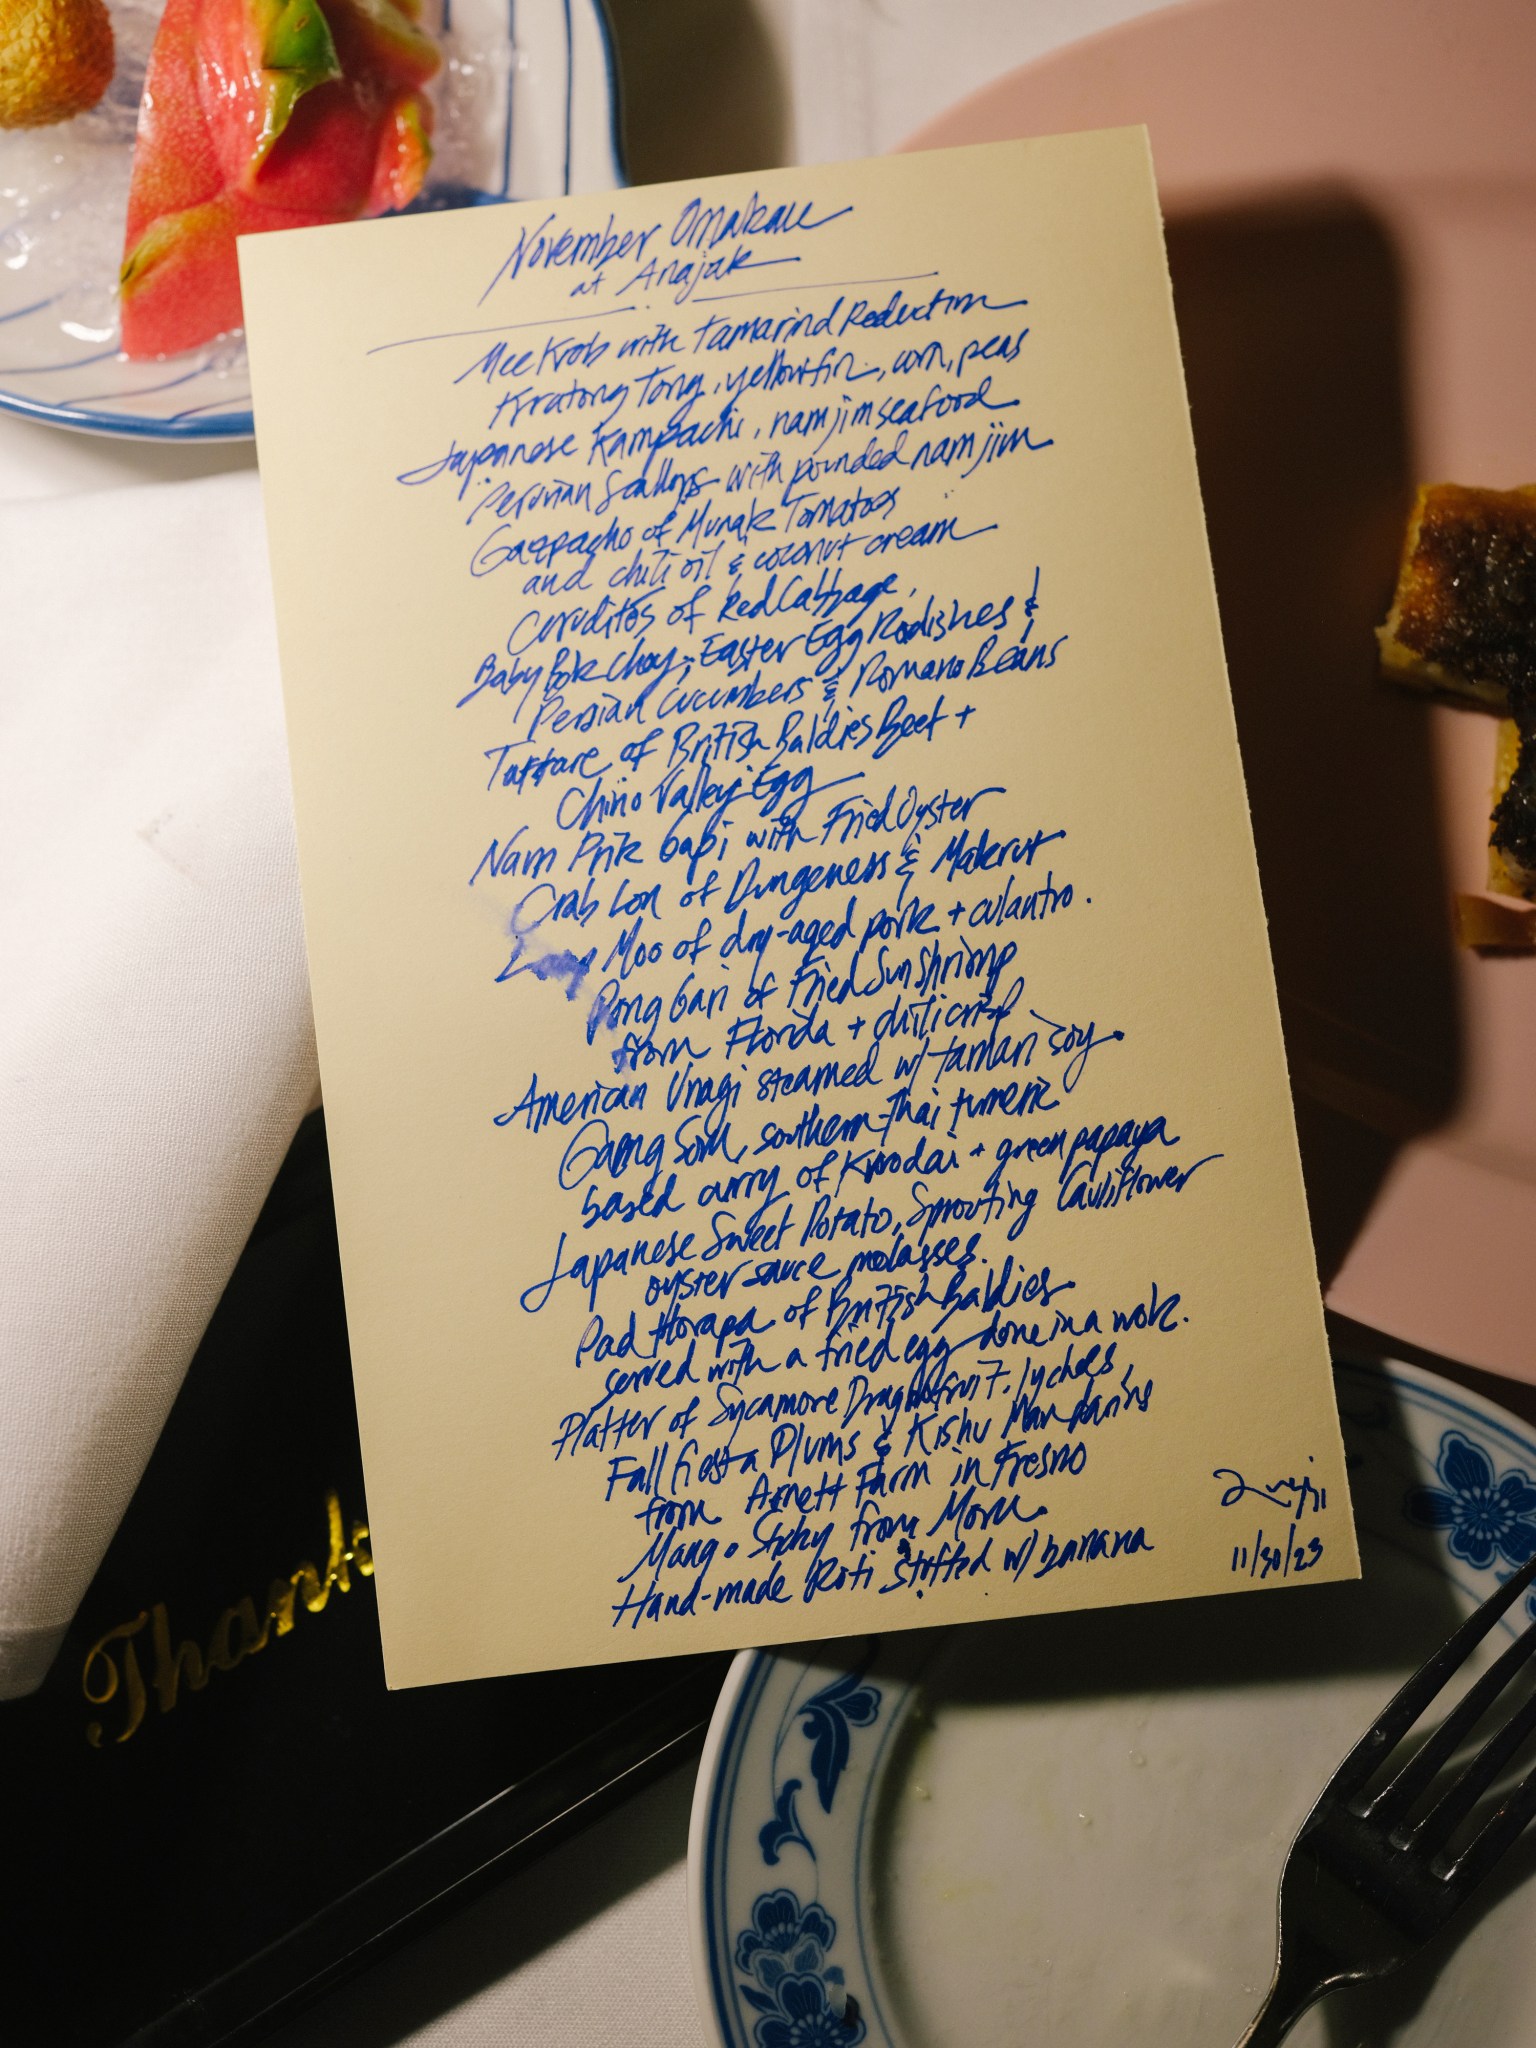 November Omakase
at Anajak
Mee Krob with Tamarind Reduction
Kratong Tong, yellowfin, corn, peas
Japanese Kampachi, nam jim seafood
Peruvian Scallops with pounded nam jim
Gazpacho of Munak Tomatoes
and chili oil & coconut cream
Crudités of Red Cabbage,
Baby Bok choy, Easter Egg Radishes &
Persian Cucumbers & Romano Beans
Tartare of British Baldies Beef +
Chino Valley Egg
Nam Prik Gapi with Fried Oyster
Crab Lon of Dungeness & Makrut
Moo of dry-aged pork + culantro.
Pong Gari of Fried Sun Shrimp
from Florida + chili crisp
American Unagi steamed w/ tamari soy.
Gaeng Som, southern-Thai turmeric
based curry of + green papaya
Japanese Sweet Potato, Sprouting Cauliflower
oyster sauce molasses.
Pad Horapa of British Baldies
served with a fried egg done in a wok.
Platter of Sycamore Dragonfruit, lychees,
Fall fiesta Plums & Kishu Mandarins
from Arnett Farm in Fresno
Mango Sticky from Mom.
Hand-made Roti stuffed w/ banana
11/30/23
Thank